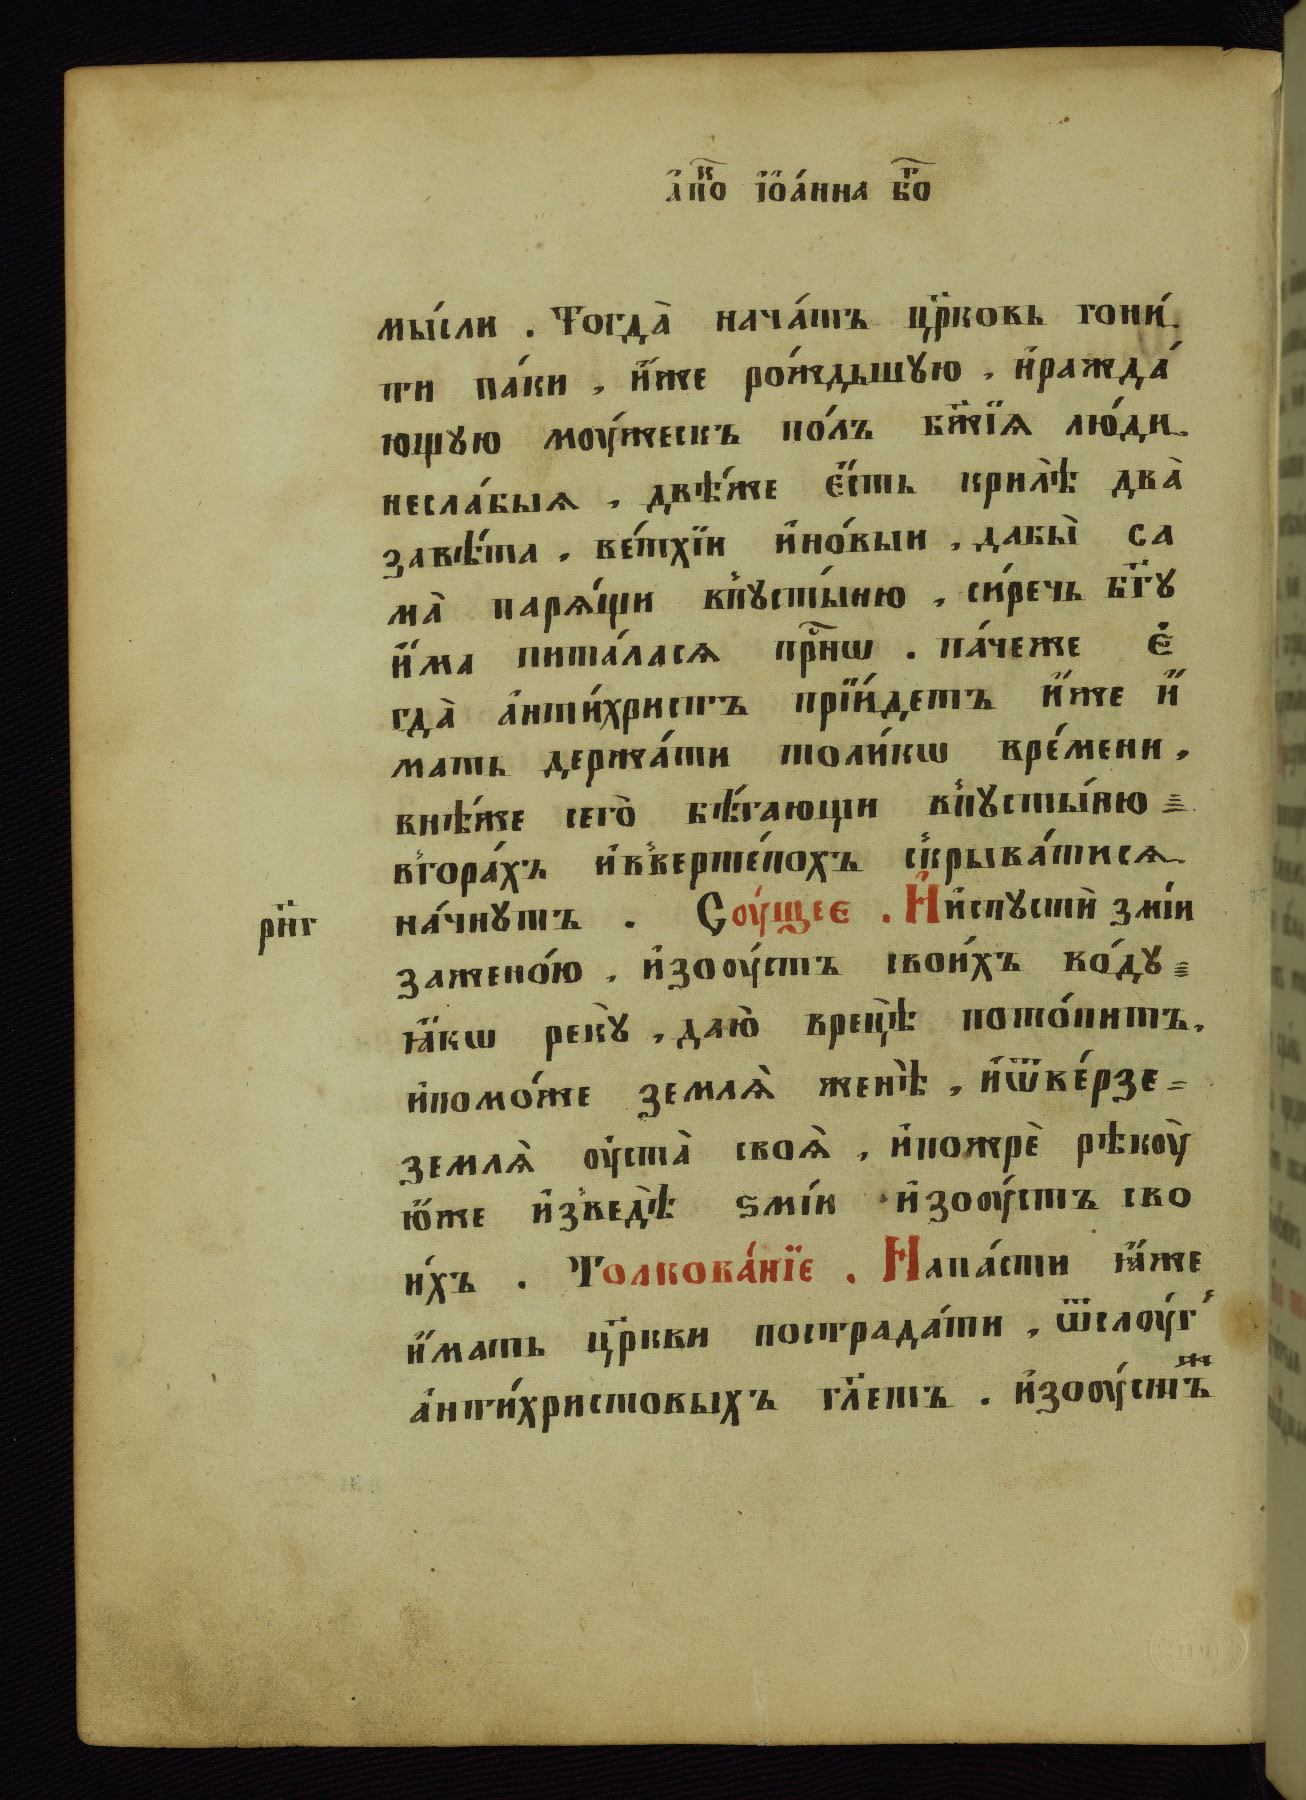 а҆п҃кⷭ҇о і҆ѡа́нна бг҃о
мы́сли . Тогда̀ нача́тъ цр҃ковь гони́
ти па́ки , и҆́же ро́ждьшую , и҆ражда́
ющую моу́жескъ по́лъ бж҃їѧ лю́ди
несла́быѧ , двѣ́же є҆́сть крилѣ̀ два̀
завѣ́та , ве́тхїи и҆но́выи , дабы̀ са
ма̀ парѧ́щи впусты́ню , си́речь бг҃у
и҆́ма пита́ласѧ при́нѡ . па́чеже є҆
гда̀ а҆нти́христъ прїи́детъ и҆́же и҆́
мать держа́ти толи́кѡ вре́мени ,
внѣ́же сего̀ бѣ́гающи впусты́ню
вгора́хъ и҆ввертепохъ скрыва́тисѧ
на́чнутъ . Соу́щее . И҆и҆спустѝ змі́и
рн҃г
заженою , и҆зооу́стъ свои́хъ во́ду
ꙗ҆́кѡ реку̀ , даю̀ врецѣ̀ пото́питъ ,
и҆помо́же землѧ̀ женѣ̀ , и҆ѿве́рзе
землѧ̀ оу҆ста̀ своѧ̀ , и҆пожрѐ рѣкоу̀
ю҆́же и҆зведѣ̀ ѕмі́и и҆зооу́стъ сво
и́хъ . Толкова́нїе . Напа́сти ꙗ҆́же
и҆́мать цр҃кви пострада́ти , ѿслоу́г
а҆нти́христовыхъ гл҃етъ . и҆зооу́стъж